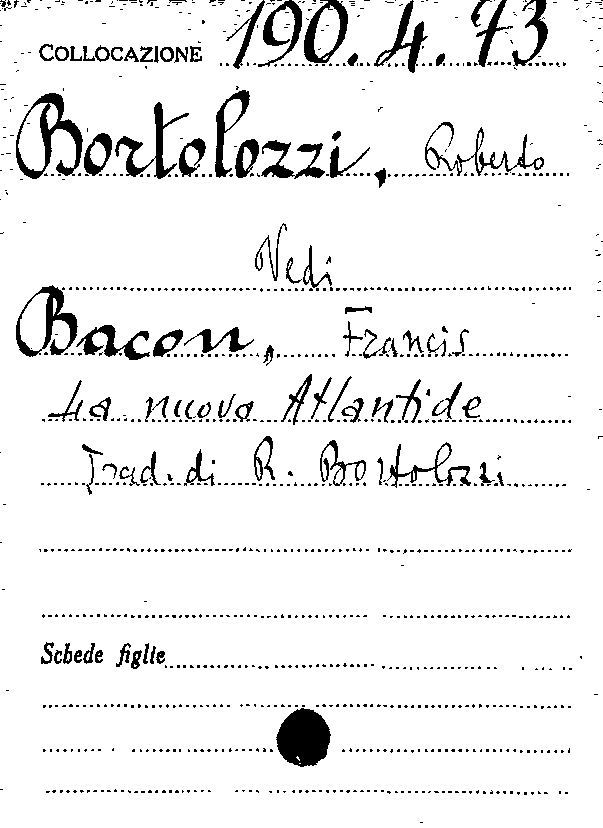 COLLOCAZIONE 190.4.73
Bortolozzi, Roberto
Vedi
Bacon, Francis
La nuova Atlantide
Trad. di R. Bortolozzi
Schede figlie